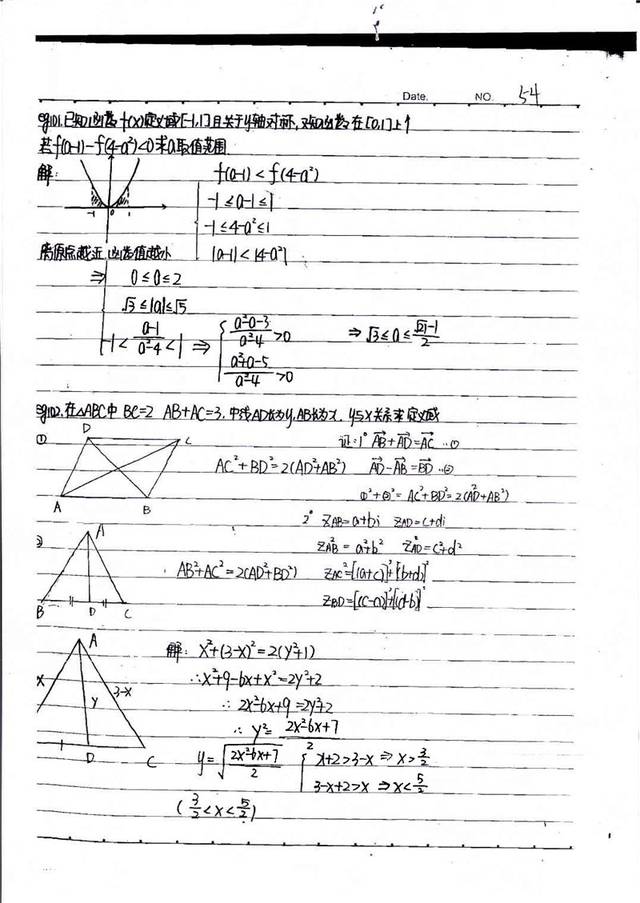 Date. NO. 54
eg101.已知函数f(x)定义域[-1,1]且关于y轴对称,又知函数在[0,1]上↑
若f(a-1)-f(4-a²)<0求a取值范围
解: f(a-1)<f(4-a²)
-1≤a-1≤1
-1≤4-a²≤1
|a-1|<|4-a²|
-1 0 1
离原点越近 函数值越小
⇒ 0≤a≤2
√3≤|a|≤√5
-1<(a-1)/(a²-4)<1 ⇒ (a²-a-3)/(a²-4)>0 ⇒√3≤a≤(√21-1)/2
(a²+a-5)/(a²-4)>0
eg102.在△ABC中 BC=2 AB+AC=3.中线AD长为y,AB长为x, y与x关系求定义域
① D C A B
证:1° AB+AD=AC …①
AC²+BD²=2(AD²+AB²) AD-AB=BD …②
①²+②²= AC²+BD²=2(AD²+AB²)
2° Z_AB=a+bi Z_AD=c+di
Z_AB²=a²+b² Z_AD²=c²+d²
② A B D C
AB²+AC²=2(AD²+BD²) Z_AC²=[(a+c)]²+[b+d]²
Z_BD=[(c-a)]²+[(d-b)]²
A x y 3-x D C
解: x²+(3-x)²=2(y²+1)
∴x²+9-6x+x²=2y²+2
∴2x²-6x+9=2y²+2
∴ y²=(2x²-6x+7)/2
y=√((2x²-6x+7)/2) x+2>3-x ⇒x>3/2
3-x+2>x ⇒x<5/2
(3/2<x<5/2)